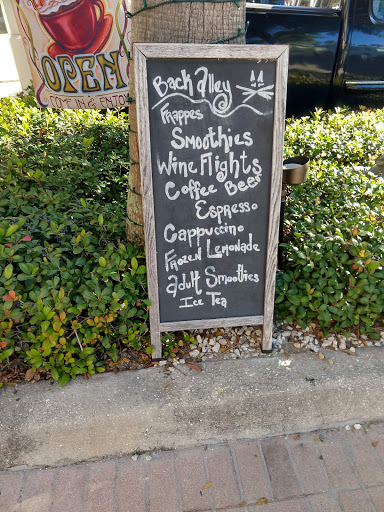 OPEN
COME IN & ENJOY
Back Alley
Frappes
Smoothies
Wine Flights
Coffee Beer
Espresso
Cappuccino
Frozen Lemonade
Adult Smoothies
Ice Tea